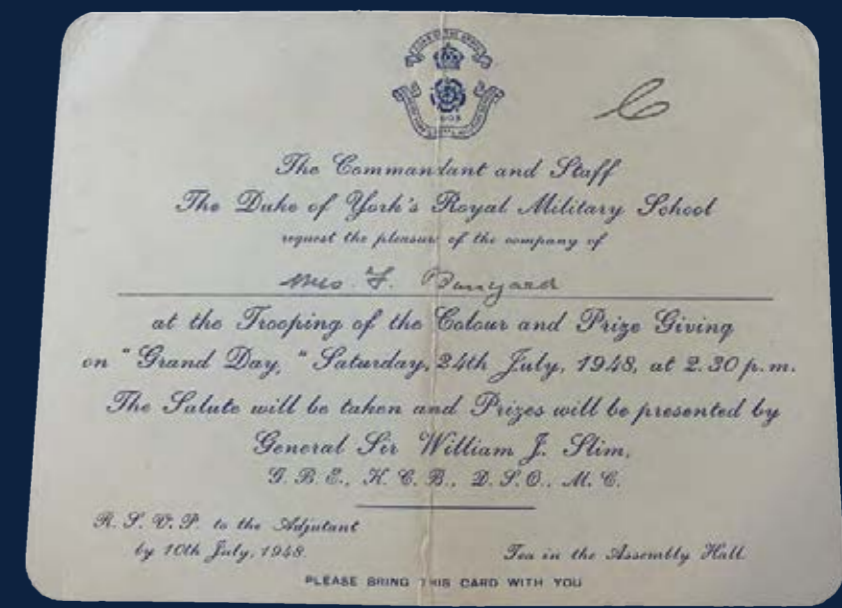 The Commandant and Staff
The Duke of York's Royal Military School
request the pleasure of the company of
Mrs. F. Bunyard
at the Trooping of the Colour and Prize Giving
on "Grand Day, " Saturday, 24th July, 1948, at 2.30 p.m.
The Salute will be taken and Prizes will be presented by
General Sir William J. Slim,
G.B.E., K.C.B., D.S.O., M.C.
R.S.V.P. to the Adjutant
by 10th July, 1948.
Tea in the Assembly Hall
PLEASE BRING THIS CARD WITH YOU